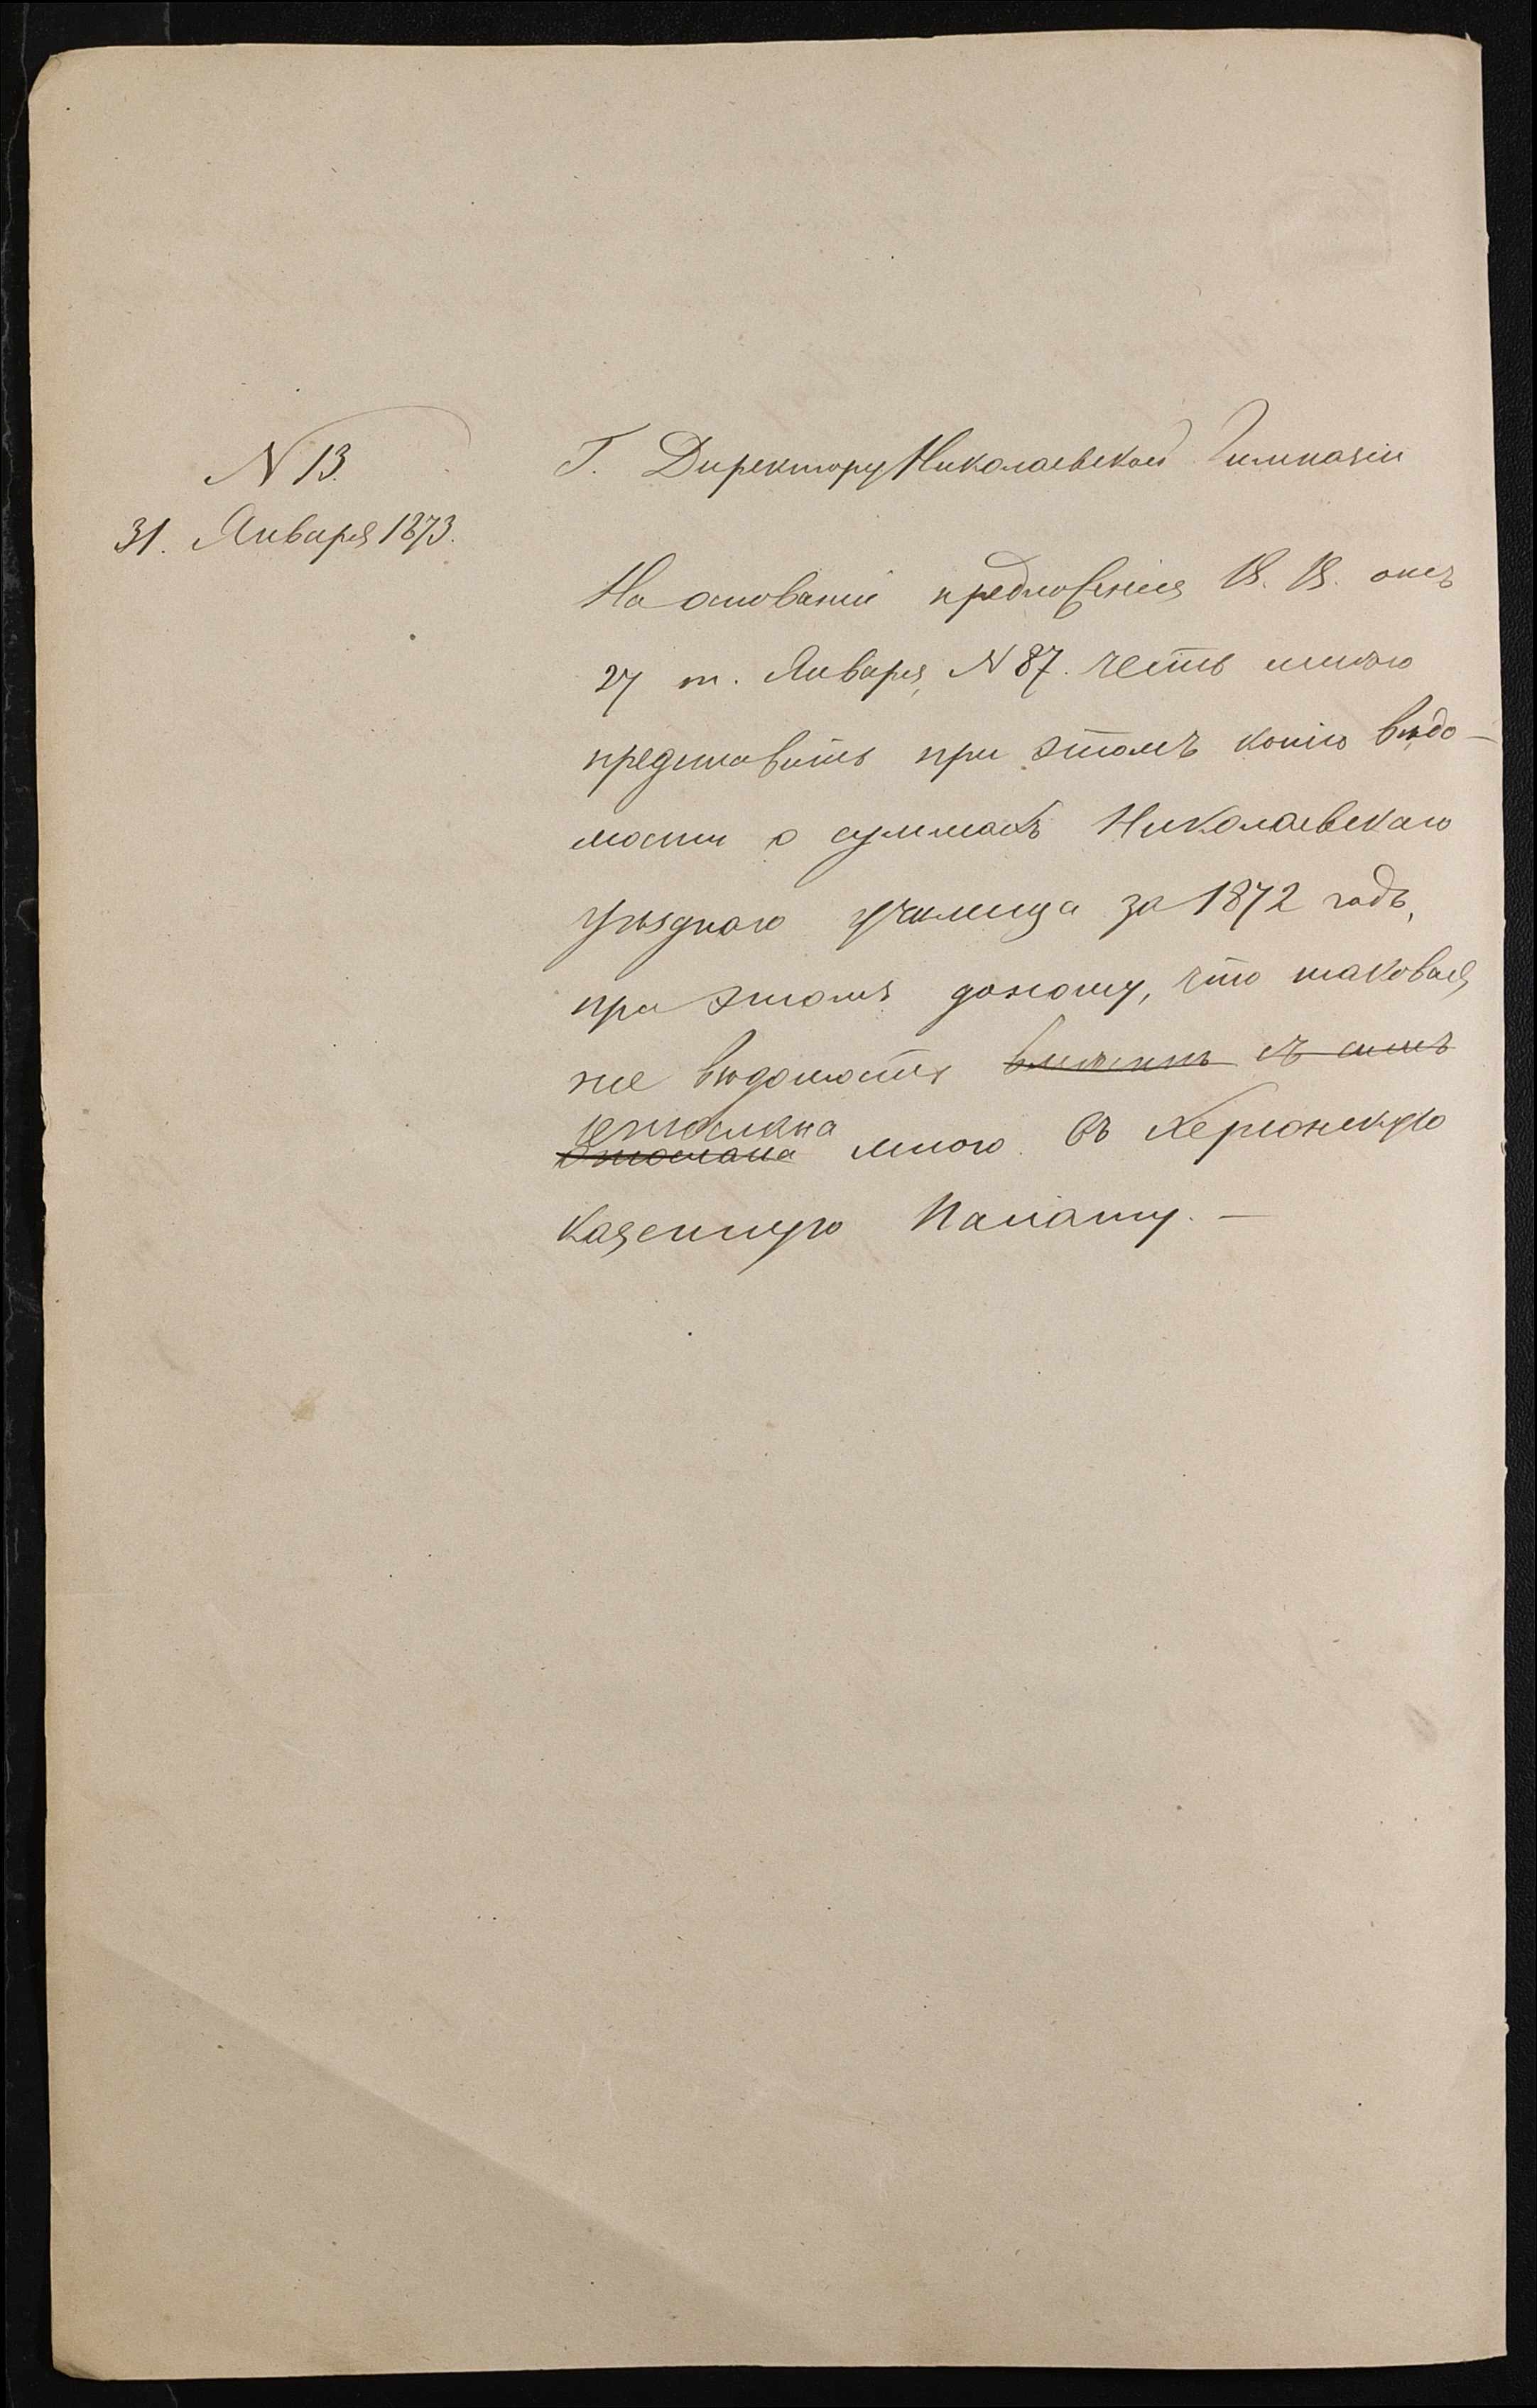 N 13.
31. Января 1873.
Г. Директору Николаевской Гимназіи
На основаніи предложенія В. В. отъ
27 т. Января, N 87. честь имѣю
представить при этомъ копію вѣдо-
мости о суммахъ Николаевскаго
Уѣзднаго училища за 1872 годъ,
при этомъ доношу, что таковая
же вѣдомость вмѣстѣ съ симъ
отослана
Отослана мною въ Херсонскую
Казенную Палату. —